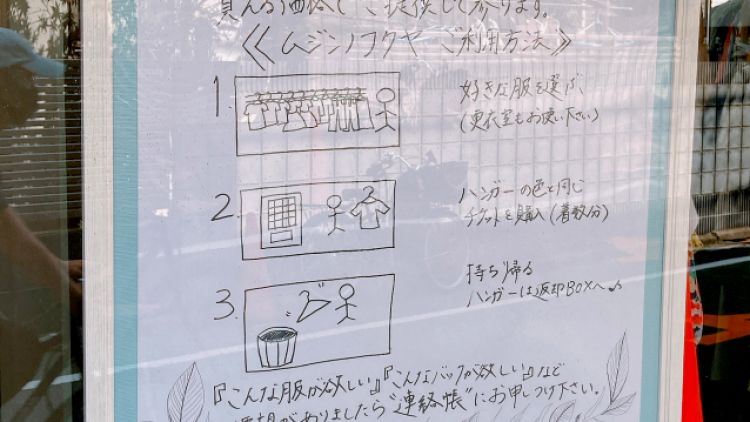 買える価格でご提供しております。
《ムジンノフクヤ ご利用方法》
1.
好きな服を選ぶ、
(更衣室もお使い下さい)
2.
ハンガーの色と同じ
チケットを購入(着数分)
3.
持ち帰る
ハンガーは返却BOXへ♪
『こんな服が欲しい』『こんなバックが欲しい』など
要望がありましたら"連絡帳"にお申しつけ下さい。